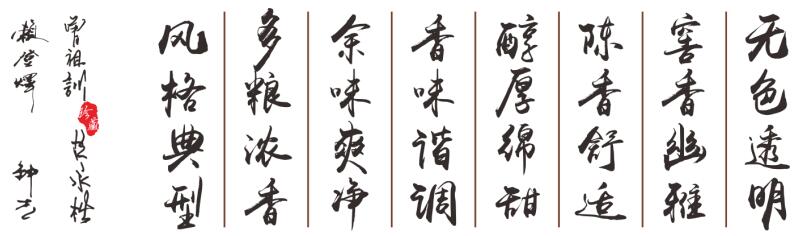 无色透明
窖香幽雅
陈香舒适
醇厚绵甜
香味谐调
余味爽净
多粮浓香
风格典型
曾祖訓
珍藏